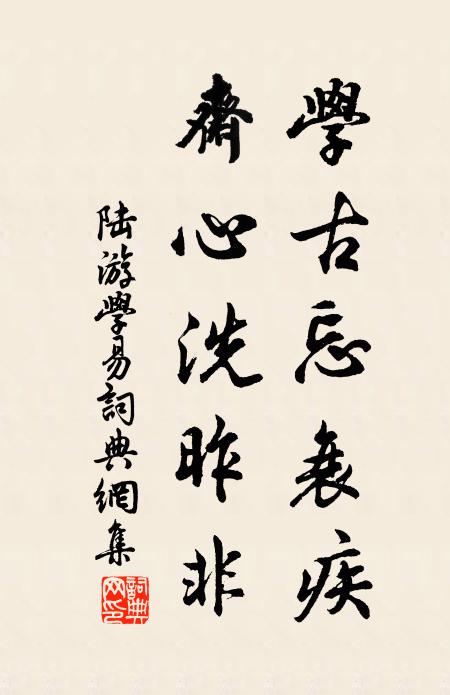 學古忘衰疾
齋心洗昨非
陆游學易詞典網集
詞典网印